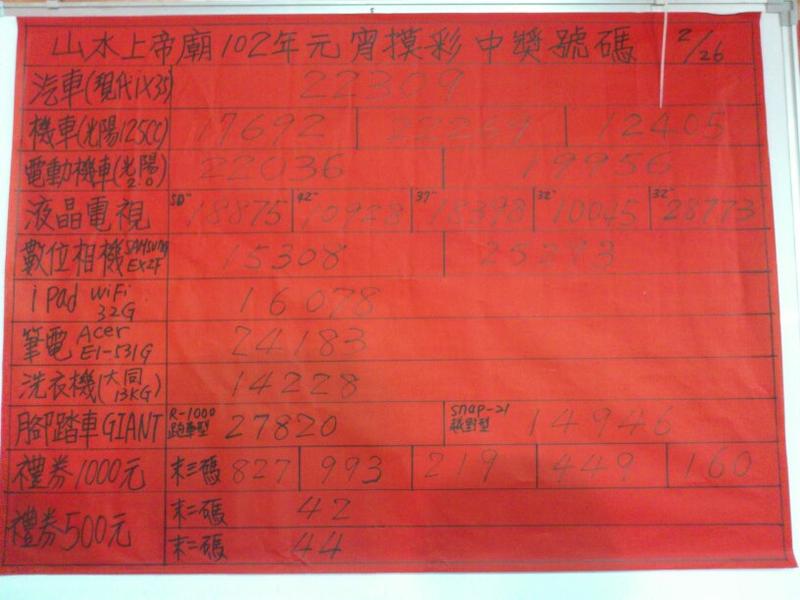 山水上帝廟102年元宵摸彩中獎號碼 2/26
汽車(現代iX35) 22309
機車(光陽125CC) 17692 22259 12405
電動機車(光陽2.0) 22036 19956
液晶電視 50" 18875 42" 10928 37" 18393 32" 10045 32" 28773
數位相機 SAMSUNG EX2F 15308 25293
iPad WiFi 32G 16078
筆電 Acer E1-531G 24183
洗衣機(大同13KG) 14228
腳踏車GIANT R-1000 跑車型 27820 SNAP-21 越野型 14946
禮券1000元 末三碼 827 993 219 449 160
禮券500元 末二碼 42
末二碼 44